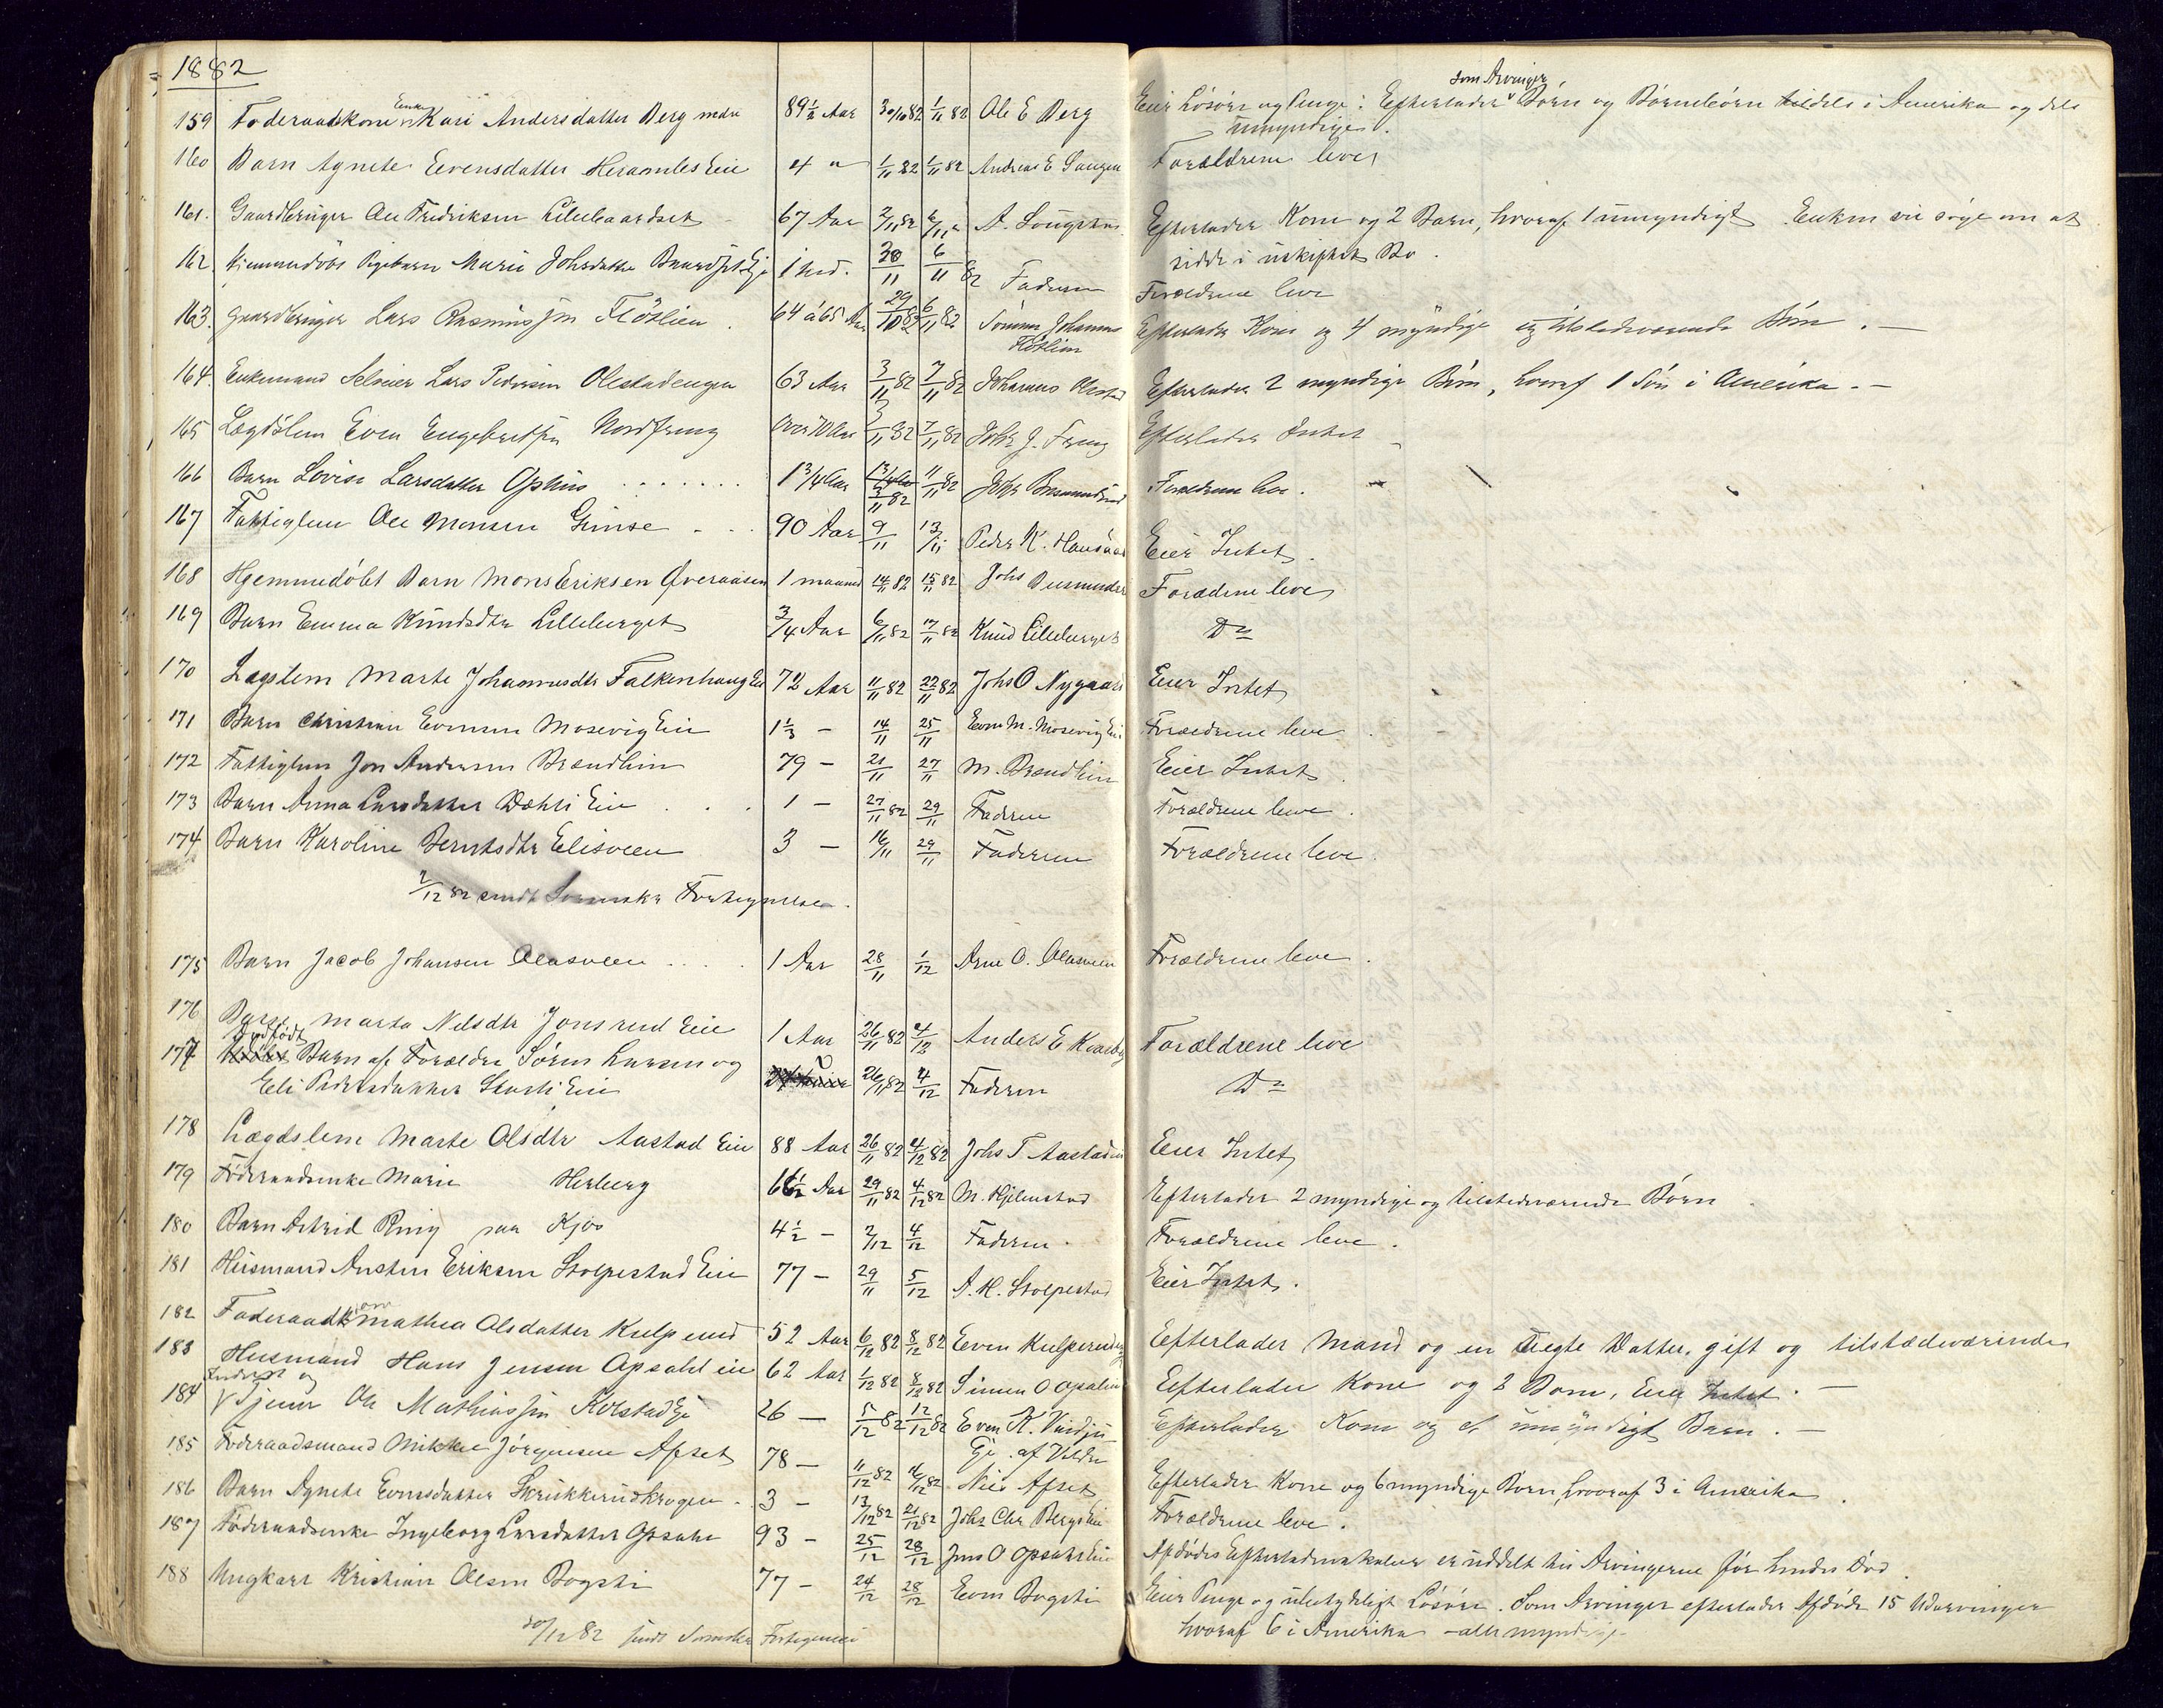 1882
som Arvinger
159 Foderaadskone Enke Kari Andersdatter Berg nedre 89 1/2 Aar 30/10 82 1/11 82 Ole E Berg Eier Lösöre og Penge: Efterlader Börn og Börnebörn tildels i Amerika og dels
umyndige.
160 Barn Agnete Evensdatter Eie 4 " 1/11 82 1/11 82 Andreas E Forældrene lever
161. Gaardbruger Ole Fredriksen Lillebaardset 67 Aar 2/11 82 6/11 A. Efterlader Kone og 2 Barn, hvoraf 1 umyndigt. Enken vil söge om at
sidde i uskiftet Bo.
162. Hjemmedöbt Pigebarn Marie Johsdatter Eje 1 6/11 82 Faderen Forældrene leve
163. Gaardbruger Lars Rasmussen Flötlien 64 à 65 Aar 29/10 82 6/11 82 Sönnen Johannes
Flötlien Efterlader Kone og 4 myndige og tilstedeværende Börn. —
164. Enkemand Selveier Lars Pedersen Olestadengen 63 Aar 3/11 82 7/11 82 Johannes Olestad Efterlader 2 myndige Börn, hvoraf 1 Sön i Amerika. —
165 Lægdslem Even Engebretsen Nordfreng over 70 Aar 3/11 82 7/11 82 Johs J. Freng Efterlader Intet
166 Barn Lovise Larsdatter Ophus 1 3/4 Aar 3/11 82 11/11 82 Johs Forældrene leve.
167 Fattiglem Ole Monsen Grinse 90 Aar 9/11 13/11 Peder K. Eier Intet.
168 Hjemmedöbt Barn Mons Eriksen Överaasen 1 maaned 14/11 82 15/11 82 Johs Forældrene leve
169 Barn Emma Knudsdtr Lilleberget 3/4 Aar 6/11 82 17/11 82 Knud Lilleberget Do
170 Lægslem Marte Johannesdtr Falkenhaug Eie 72 Aar 11/11 82 22/11 82 Johs O Nygaard Eier Intet
171 Barn Christian Evensen Mosevig Eie 1 1/3 — 14/11 25/11 Even M. Mosevig Eie Forældrene leve
172 Fattiglem Jon Andersen Brændlien 79 — 21/11 27/11 M. Brændlien Eier Intet
173 Barn Anna Larsdatter Dæhli Eie 1 — 27/11 82 29/11 Faderen Forældrene leve.
174 Barn Karoline Berntsdtr Elisveen 3 — 16/11 29/11 Faderen Forældrene leve.
2/12 82 sendt Fortegnelse.
175 Barn Jacob Johansen Olasveen 1 Aar 28/11 1/12 Arne O. Olasveen Forældrene leve.
176 Barn Marta Nelsdtr Jonsrud Eie 1 Aar 26/11 82 4/12 Anders E Kvarberg Forældrene leve
177 Dødfödt Barn af Forældre Sören Larsen og
Eli Pedersdatter Skarli Eie 26/11 82 4/12 Faderen Do
178 Lægdslem Marte Olsdtr Aastad Eie 88 Aar 26/11 82 4/12 82 Johs T Aastadeie Eier Intet
179 Föderaadsenke Marie Herberg 66 1/2 Aar 29/11 82 4/12 82 M. Hjelmstad Efterlader 2 myndige og tilstedeværende Börn
180 Barn Astrid Ring paa Kjos 4 1/2 — 2/12 4/12 Faderen. Forældrene leve.
181 Husmand Austen Eriksen Stolpestad Eie 77 — 29/11 5/12 A. H. Stolpestad Eier Intet.
182 Foderaadskone Mathea Olsdatter Kulperud 52 Aar 6/12 82 8/12 82 Even Kulperud Efterlader Mand og en Ægte Datter, gift og tilstædeværende
183 Husmand Hans Jensen Opsahl eie 62 Aar 1/12 82 8/12 82 Simen O Opsahl Efterlader Kone og 2 Barn, Eier Intet. —
184 Inderst og Tjener Ole Mathiassen Korstad Eje 26 — 5/12 82 12/12 82 Even K.
Eje af Efterlader Kone og et umyndigt Barn. —
185 Föderaadsmand Mikkel Jörgensen Afset 78 — 11/12 82 16/12 82 Nils Afset Efterlader Kone og 6 myndige Börn, hvoraf 3 i Amerika.
186 Barn Agnete Evensdatter Skrukkerudkrogen 3 — 13/12 82 21/12 82 Johs Chr Bergs Eie Forældrene leve.
187 Föderaadsenke Ingeborg Larsdatter Opsahl 93 — 25/12 28/12 Jens O Opsahl Eie Afdödes Efterladenskaber er uddelt til Arvingerne för hendes Död.
188 Ungkarl Kristian Olsen Bogsti 77 — 24/12 28/12 Even Bogsti Eier Penge og ubetydeligt Lösöre. Som Arvinger efterlader Afdöde 15 Udarvinger
hvoraf 6 i Amerika — alle myndige
30/12 82 sendt Fortegnelse